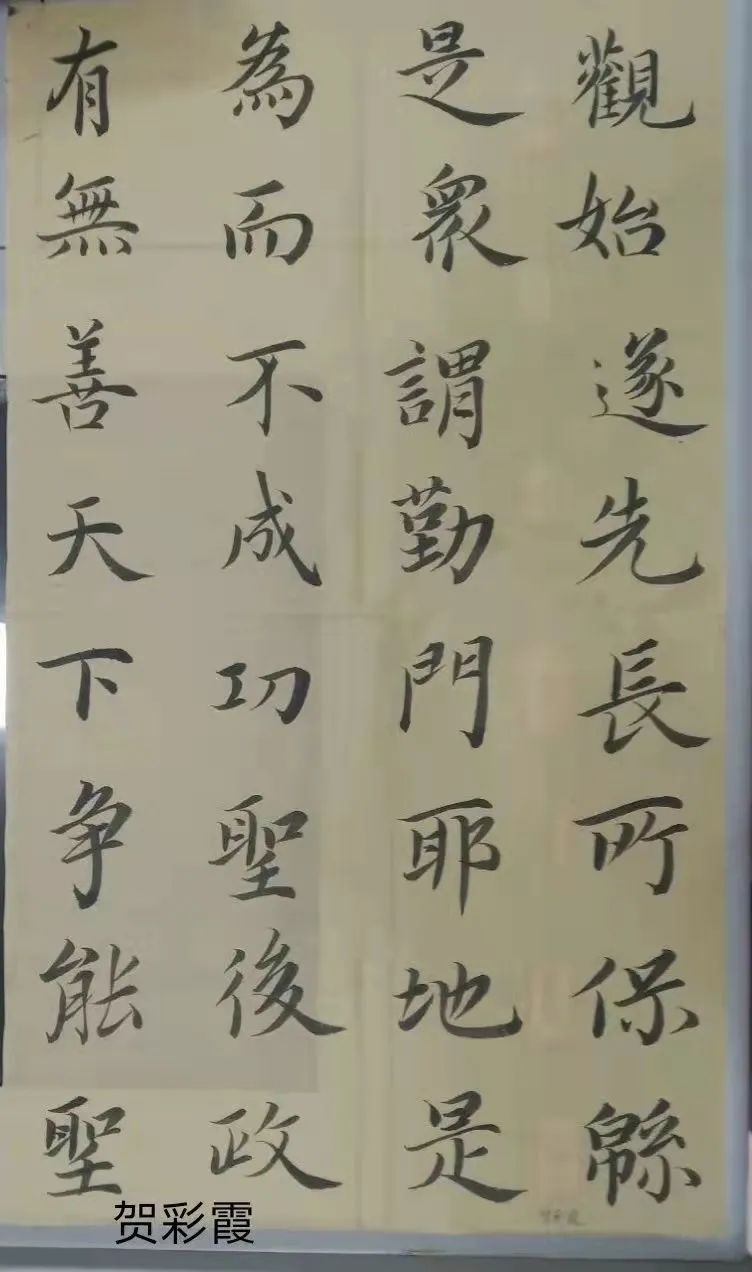 觀始遂先長所保緜
是衆謂勤門耶地是
為而不成功聖後政
有無善天下争能聖
贺彩霞